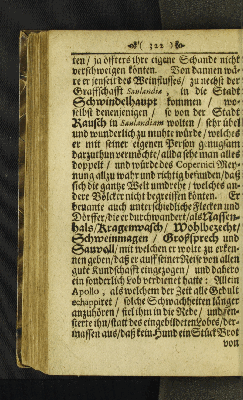 322
ten/ ja öffters ihre eigene Schande nicht
verschweigen könten. Von dannen wä-
re er jenseit des Weinflusses/ zu nechst der
Graffschafft Saulandia, in die Stadt
Schwindelhaupt kommen / wo-
selbst denenjenigen / so von der Stadt
Rausch in Saulandiam wolten / sehr übel
und wunderlich zu muthe würde / welches
er mit seiner eigenen Person genugsam
darzuthun vermöchte/ allda sehe man alles
doppelt / und würde des Copernici Mey-
nung allzu wahr und richtig befunden/ daß
sich die gantze Welt umdrehe / welches an-
dere Völcker nicht begreiffen können. Er
benante auch unterschiedliche Flecken und
Dörffer/ die er durchwandert/ als Nassen-
hals/ Kragenwasch/ Wohlbezecht/
Schweinmagen / Großsprech und
Sauvoll/ mit welchen er wolte zu erken-
nen geben/ daß er auff seiner Reise von allen
gute Kundschafft eingezogen / und dahero
ein sonderlich Lob verdienet hätte: Allein
Apollo, als welchem der Zeit alle Gedult
echappiret / solche Schwachheiten länger
anzuhören / fiel ihm in die Rede / und fen-
sterte ihn/ statt des eingebildeten Lobes/ der-
massen aus/ daß kein Hund ein Stück Brot
von